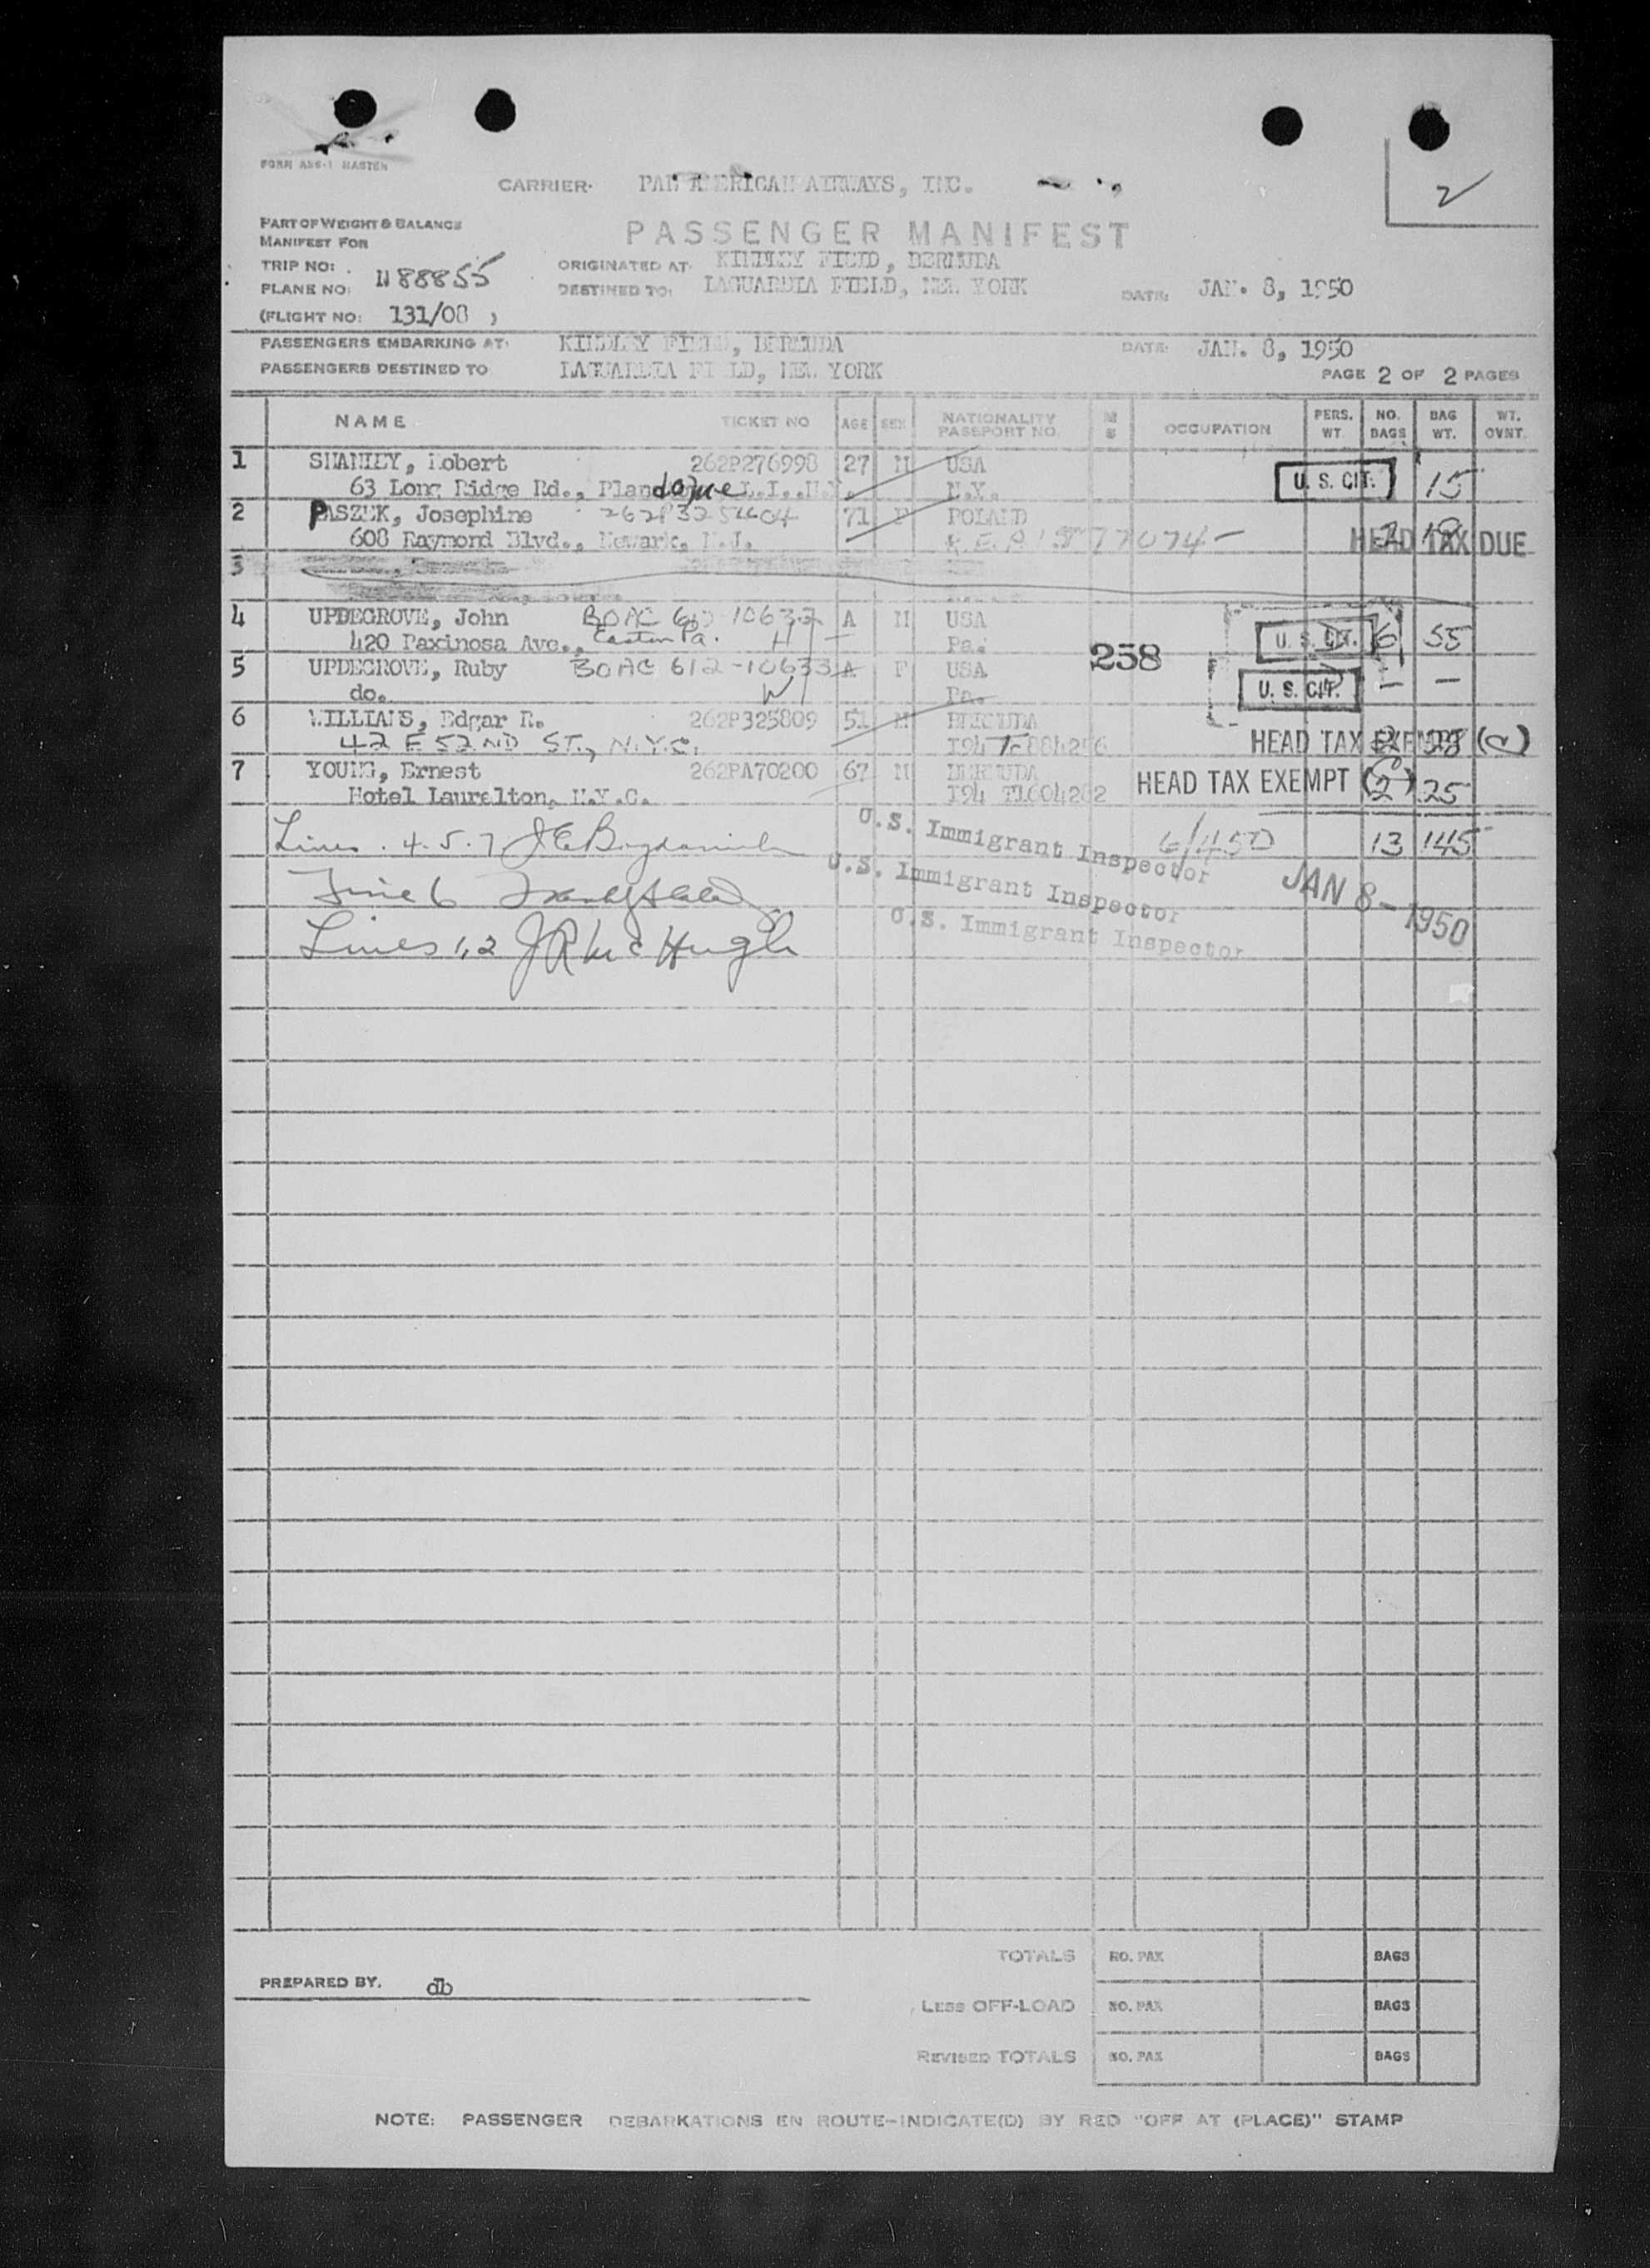 FORM ASS-1 MASTER
CARRIER: PAN AMERICAN AIRWAYS, INC.
2
PART OF WEIGHT & BALANCE
MANIFEST FOR
PASSENGER MANIFEST
TRIP NO:
ORIGINATED AT: KINDLEY FIELD, BERMUDA
PLANE NO: N88855
DESTINED TO: LAGUARDIA FIELD, NEW YORK DATE: JAN. 8, 1950
(FLIGHT NO: 131/08 )
PASSENGERS EMBARKING AT: KINDLEY FIELD, BERMUDA DATE: JAN. 8, 1950
PASSENGERS DESTINED TO LAGUARDIA FIELD, NEW YORK
PAGE 2 OF 2 PAGES
NAME TICKET NO AGE SEX NATIONALITY PASSPORT NO. M S OCCUPATION PERS. WT. NO. BAGS BAG WT. WT. OVNT.
1 Robert 262P276998 27 M USA U. S. CIT. 15
63 Long Ridge Rd., L.I., N.Y. N.Y.
2 PASZEK, Josephine 71 F POLAND
608 Raymond Blvd., Newark, N.J. HEAD TAX DUE
3
4 UPDEGROVE, John BOAC A M USA U. S. CIT. 6 55
420 Paxinosa Ave., Easton Pa. H Pa. 258
5 UPDEGROVE, Ruby BOAC 612-10633 A F USA U. S. CIT. — —
do. W Pa.
6 WILLIAMS, Edgar R. 262P325809 51 M BERMUDA
42 E 52ND ST., N.Y.C. I94 HEAD TAX EXEMPT (c)
7 YOUNG, Ernest 262PA70200 67 M BERMUDA HEAD TAX EXEMPT (c) 2 25
Hotel Laurelton, N.Y.C. I94
Lines 4. 5. 7
U.S. Immigrant Inspector
13 145
Line 6
U.S. Immigrant Inspector
JAN 8 - 1950
Lines 1,2 JR McHugh
U.S. Immigrant Inspector
TOTALS NO. PAX BAGS
PREPARED BY. db
LESS OFF-LOAD NO. PAX BAGS
REVISED TOTALS NO. PAX BAGS
NOTE: PASSENGER DEBARKATIONS EN ROUTE-INDICATE(D) BY RED "OFF AT (PLACE)" STAMP